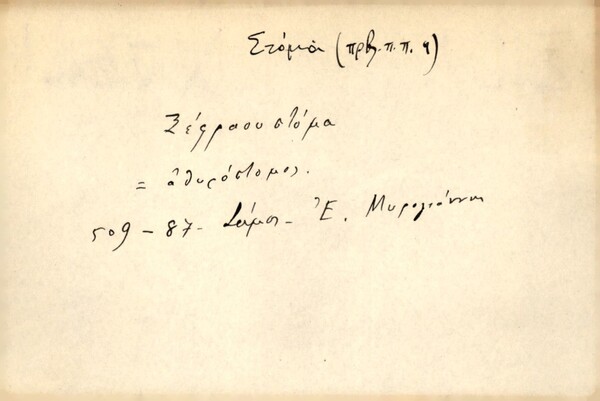 Στόμα (πρβ. π.π. 4)
Ξέφρασου στόμα
= ἀθυρόστομος.
509 - 87 - Σάμος - Ἐ. Μυρογιάννη